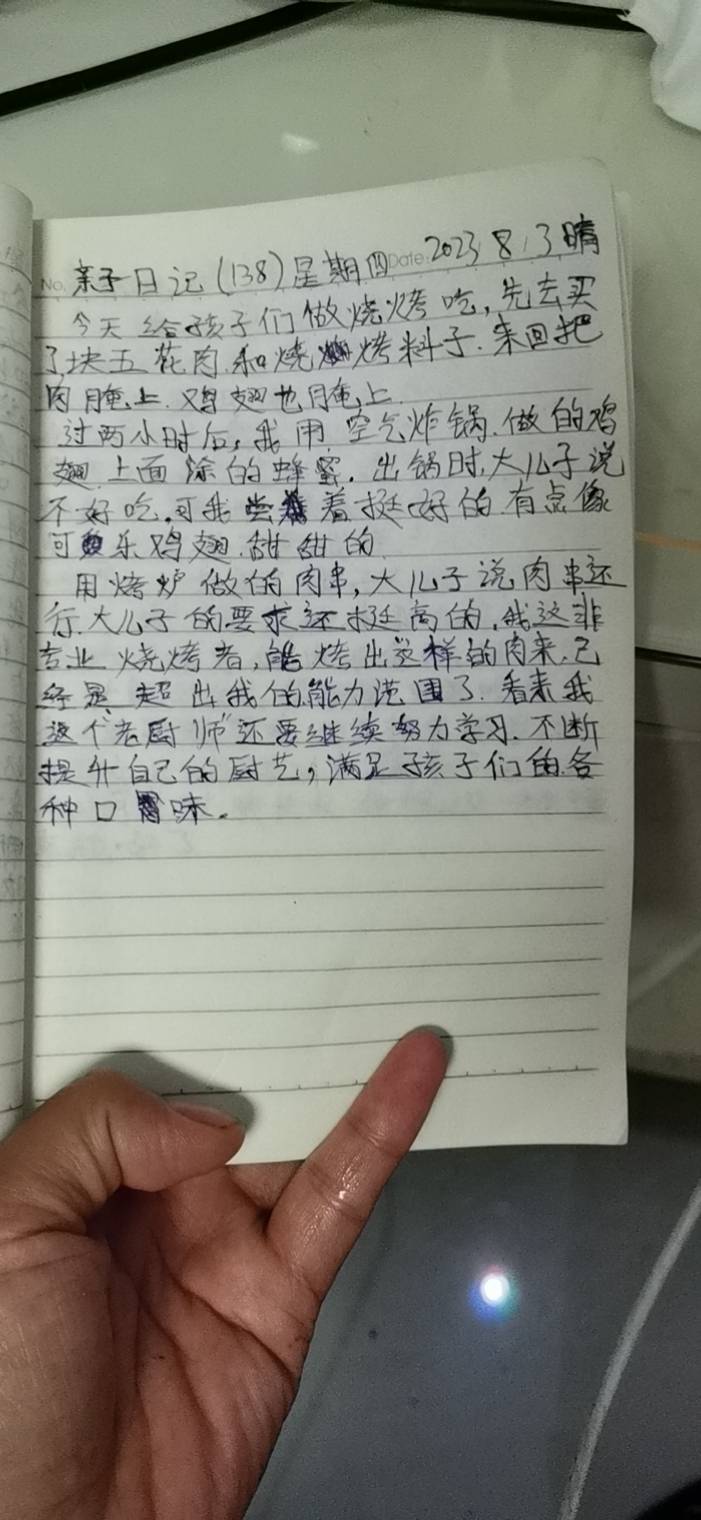 No. 亲子日记(138)星期四 Date: 2023 8.3 晴
今天给孩子们做烧烤吃,先去买
了块五花肉.和烧烤料子.来回把
肉腌上.鸡翅也腌上.
过两小时后,我用空气炸锅.做的鸡
翅.上面涂的蜂蜜.出锅时,大儿子说
不好吃.可我尝着挺好的.有点像
可乐鸡翅.甜甜的.
用烤炉做的肉串,大儿子说肉串还
行.大儿子的要求还挺高的,我这非
专业烧烤者,能烤出这样的肉来.已
经是超出我的能力范围了.看来我
这个"老厨师"还要继续努力学习.不断
提升自己的厨艺,满足孩子们的各
种口味。